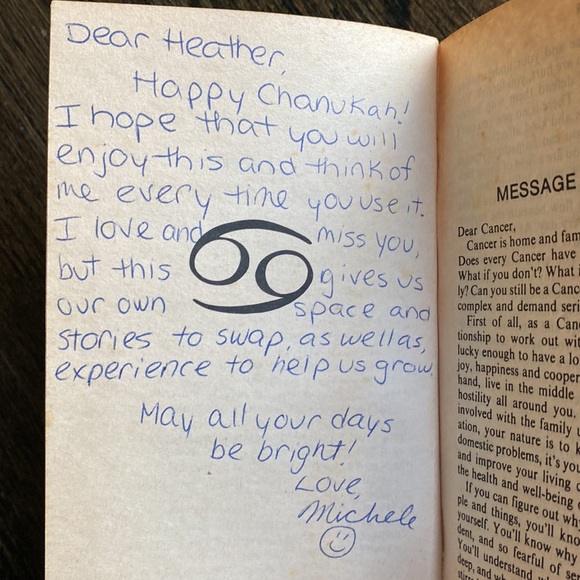 Dear Heather,
Happy Chanukah!
I hope that you will
enjoy this and think of
me every time you use it.
I love and miss you,
but this gives us
our own space and
stories to swap, as well as,
experience to help us grow.
May all your days
be bright!
Love,
Michele
MESSAGE
Dear Cancer,
Cancer is home and fam
Does every Cancer have
What if you don't? What i
ly? Can you still be a Canc
complex and demand seri
First of all, as a Can
tionship to work out wit
lucky enough to have a lo
joy, happiness and cooper
hand, live in the middle
hostility all around you.
involved with the family u
ation, your nature is to k
domestic problems, it's yo
and improve your living c
the health and well-being o
If you can figure out wh
ple and things, you'll kno
yourself. You'll know why
dent, and so fearful of se
You'll understand wh
deep, and wh